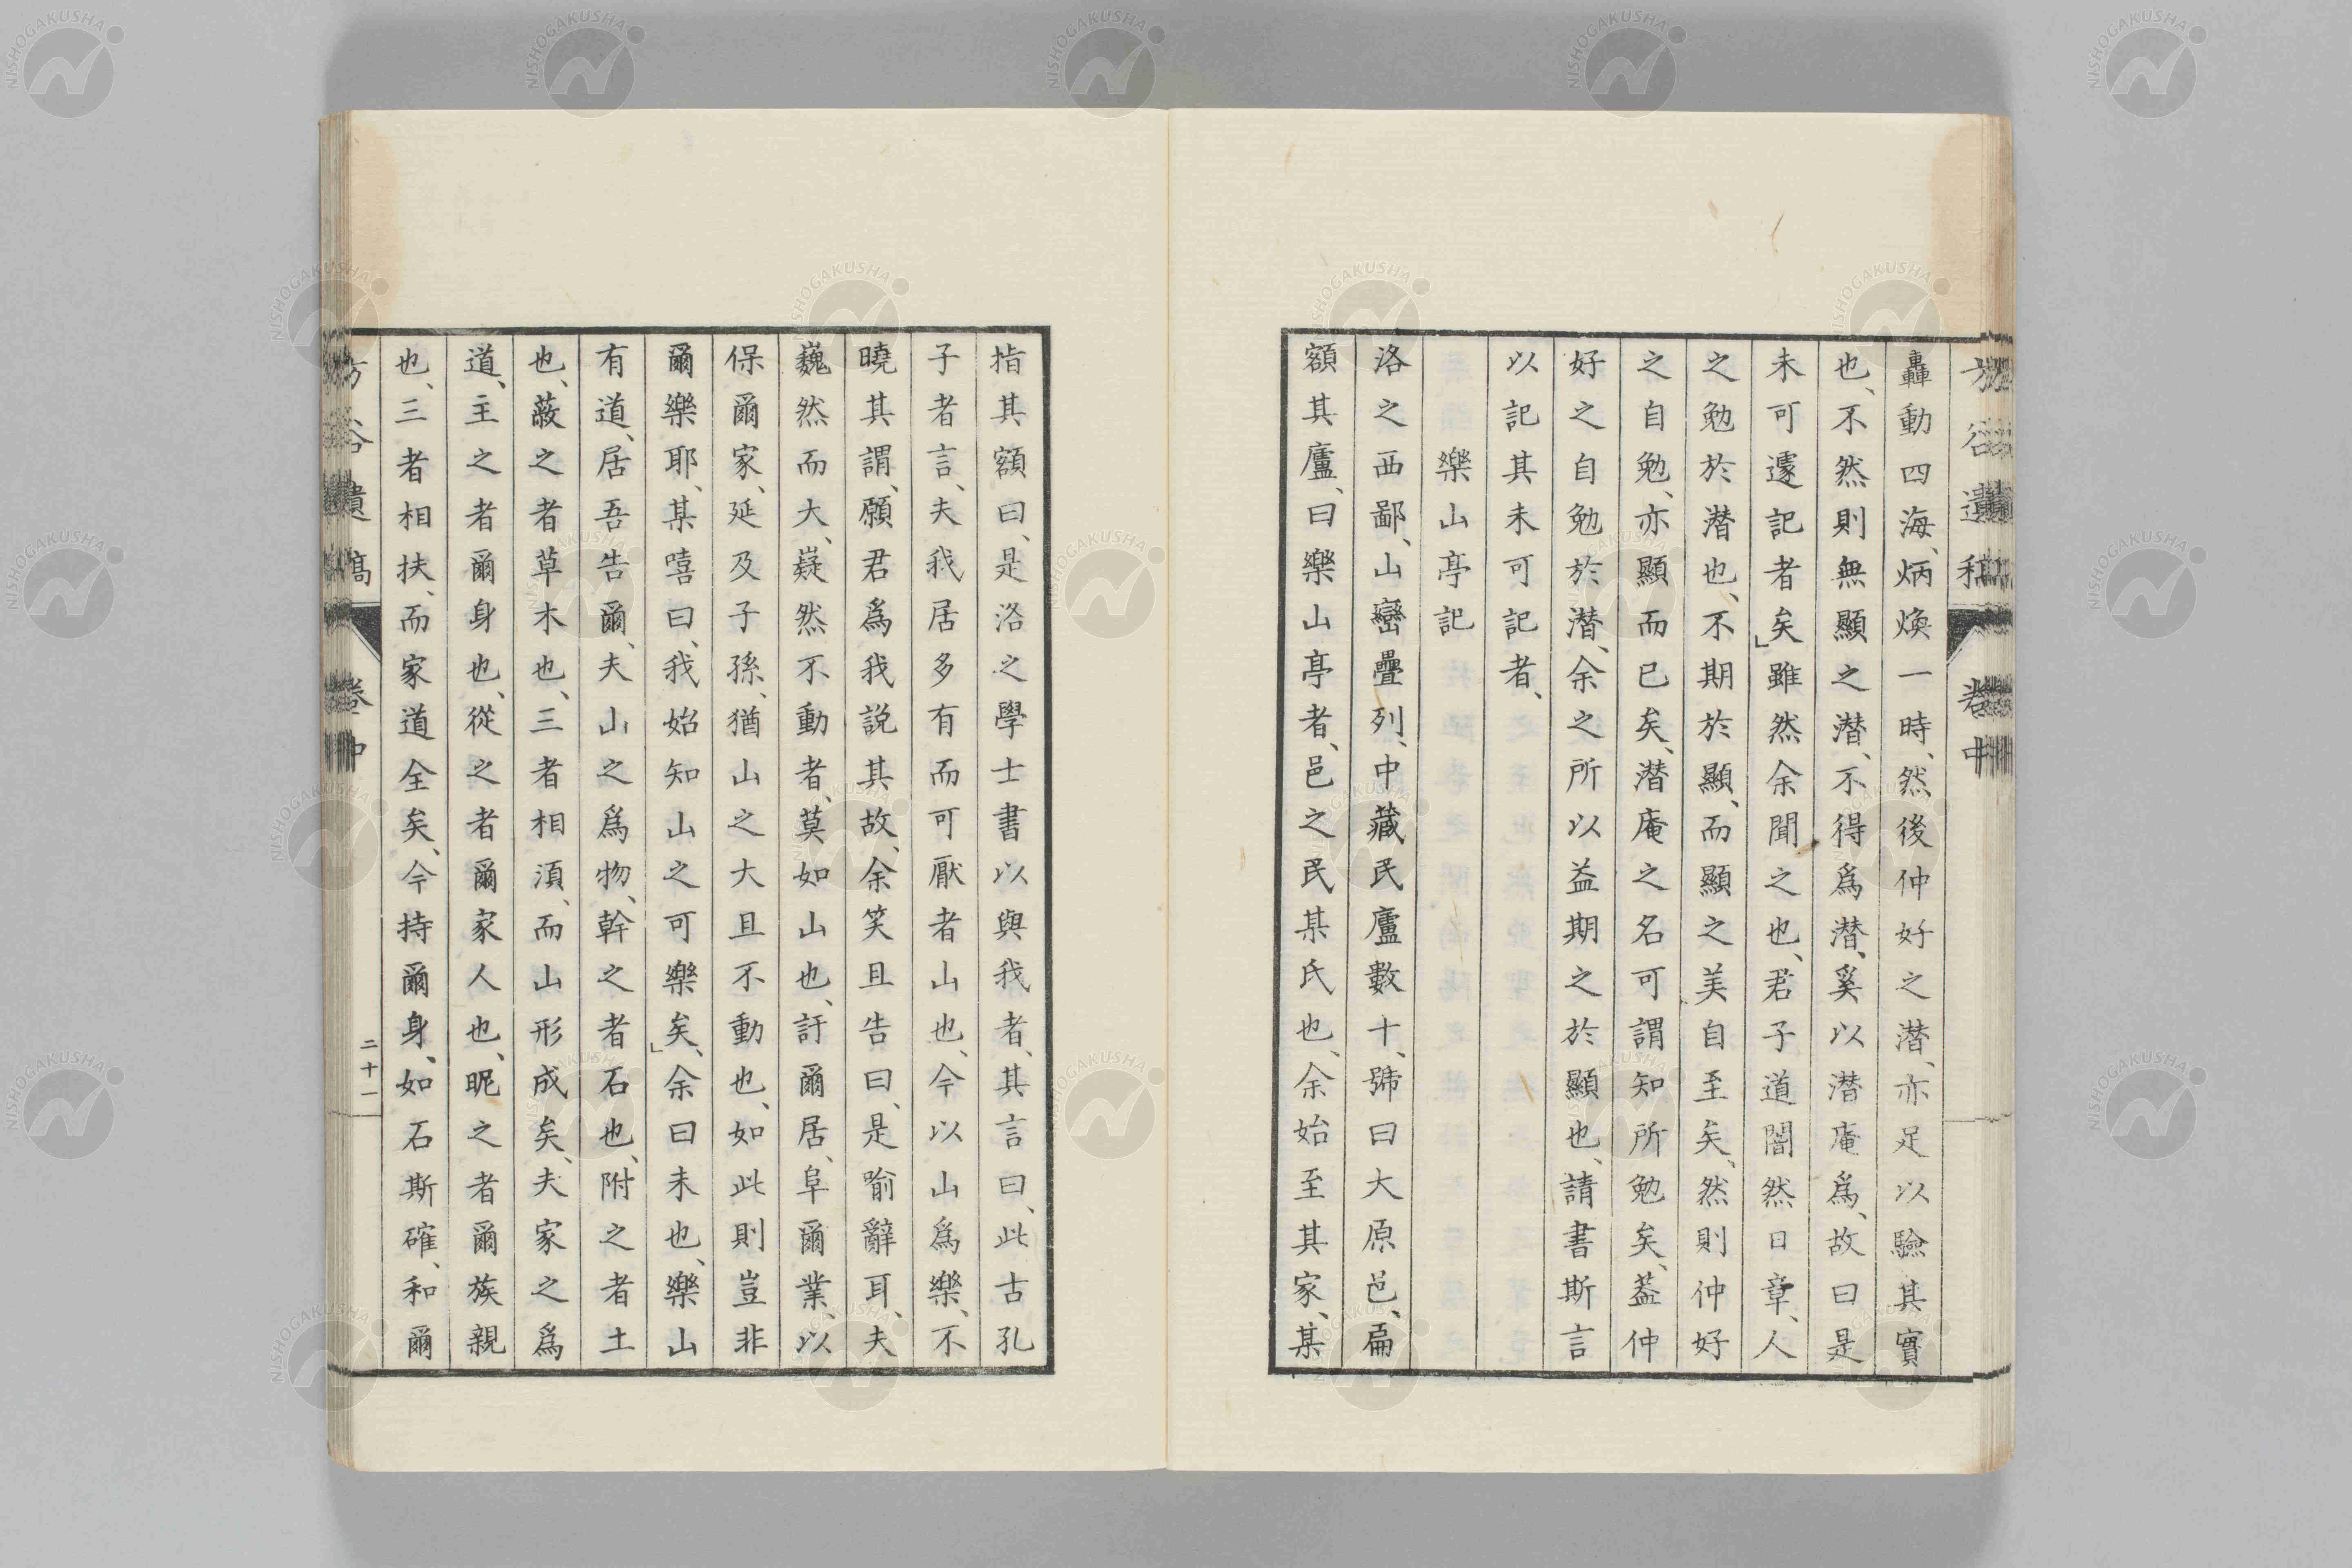 方谷遺稿 卷中
轟動四海、炳煥一時、然後仲好之潜、亦足以驗其實
也、不然則無顯之潜、不得爲潜、奚以潜庵爲、故曰是
未可遽記者矣」雖然余聞之也、君子道闇然日章、人
之勉於潜也、不期於顯、而顯之美自至矣、然則仲好
之自勉、亦顯而已矣、潜庵之名可謂知所勉矣、葢仲
好之自勉於潜、余之所以益期之於顯也、請書斯言
以記其未可記者、
樂山亭記
洛之西鄙、山巒疊列、中藏民廬數十、號曰大原邑、扁
額其廬、曰樂山亭者、邑之民某氏也、余始至其家、某
指其額曰、是洛之學士書以與我者、其言曰、此古孔
子者言、夫我居多有而可厭者山也、今以山爲樂、不
曉其謂、願君爲我説其故、余笑且告曰、是喻辭耳、夫
巍然而大、嶷然不動者、莫如山也、訏爾居、阜爾業、以
保爾家、延及子孫、猶山之大且不動也、如此則豈非
爾樂耶、某嘻曰、我始知山之可樂矣」、余曰未也、樂山
有道、居吾告爾、夫山之爲物、幹之者石也、附之者土
也、蔽之者草木也、三者相湏、而山形成矣、夫家之爲
道、主之者爾身也、從之者爾家人也、昵之者爾族親
也、三者相扶、而家道全矣、今持爾身、如石斯確、和爾
方谷遺稿 卷中 二十一
NISHOGAKUSHA